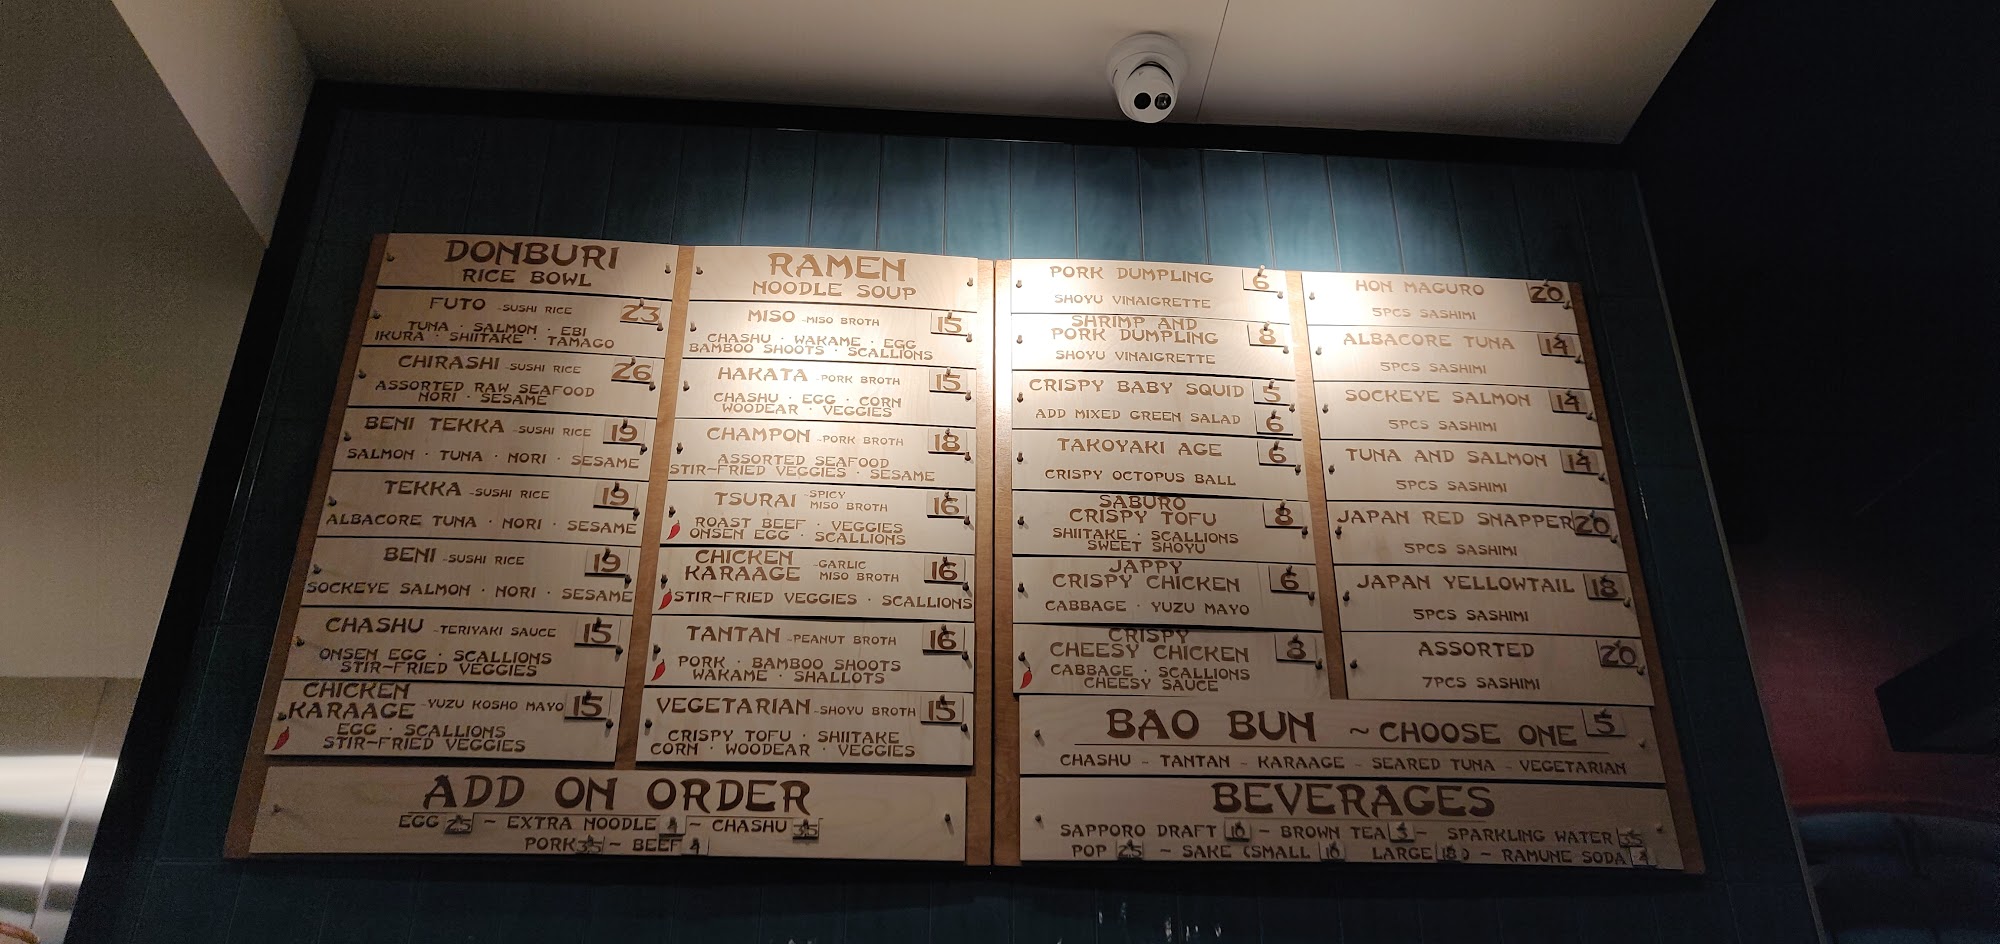 DONBURI
RICE BOWL
FUTO -SUSHI RICE 23
TUNA · SALMON · EBI
IKURA · SHIITAKE · TAMAGO
CHIRASHI -SUSHI RICE 26
ASSORTED RAW SEAFOOD
NORI · SESAME
BENI TEKKA -SUSHI RICE 19
SALMON · TUNA · NORI · SESAME
TEKKA -SUSHI RICE 19
ALBACORE TUNA · NORI · SESAME
BENI -SUSHI RICE 19
SOCKEYE SALMON · NORI · SESAME
CHASHU -TERIYAKI SAUCE 15
ONSEN EGG · SCALLIONS
STIR-FRIED VEGGIES
CHICKEN
KARAAGE -YUZU KOSHO MAYO 15
EGG · SCALLIONS
STIR-FRIED VEGGIES
RAMEN
NOODLE SOUP
MISO -MISO BROTH 15
CHASHU · WAKAME · EGG
BAMBOO SHOOTS · SCALLIONS
HAKATA -PORK BROTH 15
CHASHU · EGG · CORN
WOODEAR · VEGGIES
CHAMPON -PORK BROTH 18
ASSORTED SEAFOOD
STIR-FRIED VEGGIES · SESAME
TSURAI -SPICY
MISO BROTH 16
ROAST BEEF · VEGGIES
ONSEN EGG · SCALLIONS
CHICKEN -GARLIC
KARAAGE MISO BROTH 16
STIR-FRIED VEGGIES · SCALLIONS
TANTAN -PEANUT BROTH 16
PORK · BAMBOO SHOOTS
WAKAME · SHALLOTS
VEGETARIAN -SHOYU BROTH 15
CRISPY TOFU · SHIITAKE
CORN · WOODEAR · VEGGIES
ADD ON ORDER
EGG 2.5 ~ EXTRA NOODLE ~ CHASHU 3.5
PORK 3.5 ~ BEEF 4
PORK DUMPLING 6
SHOYU VINAIGRETTE
SHRIMP AND
PORK DUMPLING 8
SHOYU VINAIGRETTE
CRISPY BABY SQUID 5
ADD MIXED GREEN SALAD 6
TAKOYAKI AGE 6
CRISPY OCTOPUS BALL
SABURO
CRISPY TOFU 8
SHIITAKE · SCALLIONS
SWEET SHOYU
JAPPY
CRISPY CHICKEN 6
CABBAGE · YUZU MAYO
CRISPY
CHEESY CHICKEN 8
CABBAGE · SCALLIONS
CHEESY SAUCE
HON MAGURO 20
5PCS SASHIMI
ALBACORE TUNA 14
5PCS SASHIMI
SOCKEYE SALMON 14
5PCS SASHIMI
TUNA AND SALMON 14
5PCS SASHIMI
JAPAN RED SNAPPER 20
5PCS SASHIMI
JAPAN YELLOWTAIL 18
5PCS SASHIMI
ASSORTED 20
7PCS SASHIMI
BAO BUN ~ CHOOSE ONE 5
CHASHU - TANTAN - KARAAGE - SEARED TUNA - VEGETARIAN
BEVERAGES
SAPPORO DRAFT 10 ~ BROWN TEA ~ SPARKLING WATER 3.5
POP 2.5 ~ SAKE (SMALL 10 LARGE 18) ~ RAMUNE SODA